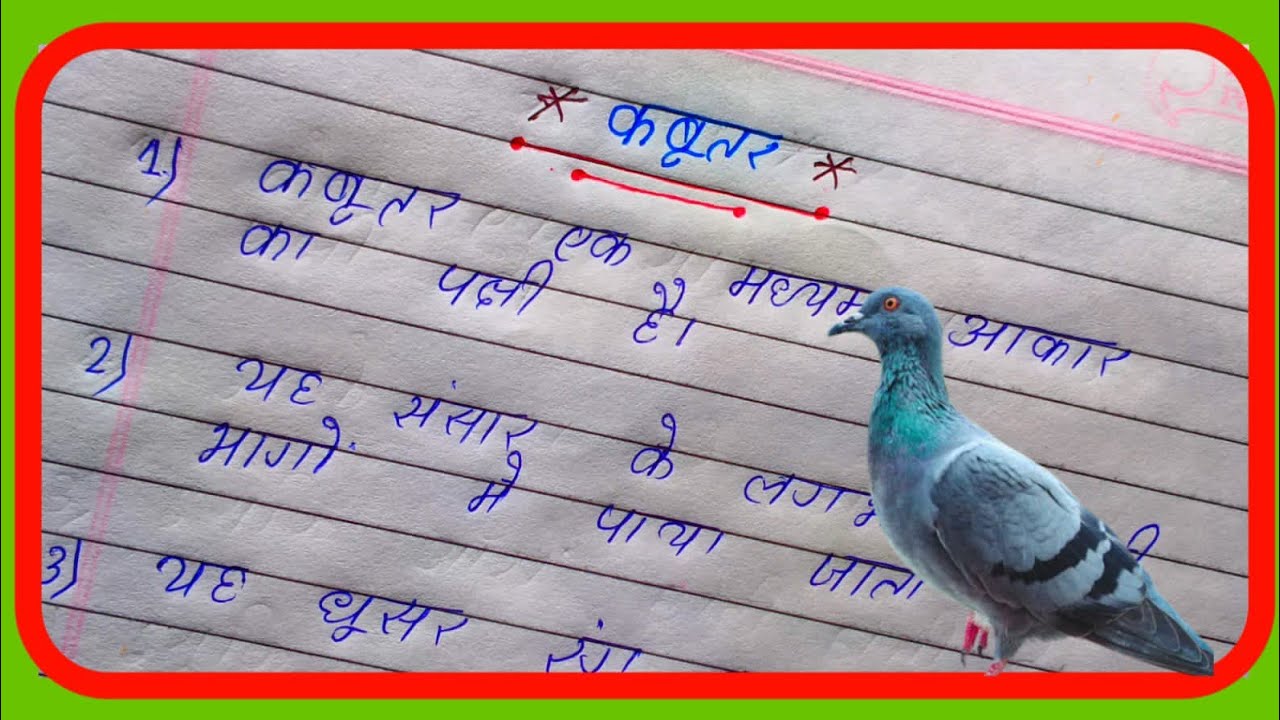 * कबूतर *
1) कबूतर एक मध्यम आकार
का पक्षी है।
2) यह संसार के
भागों में पाया जाता
3) यह धूसर रंग